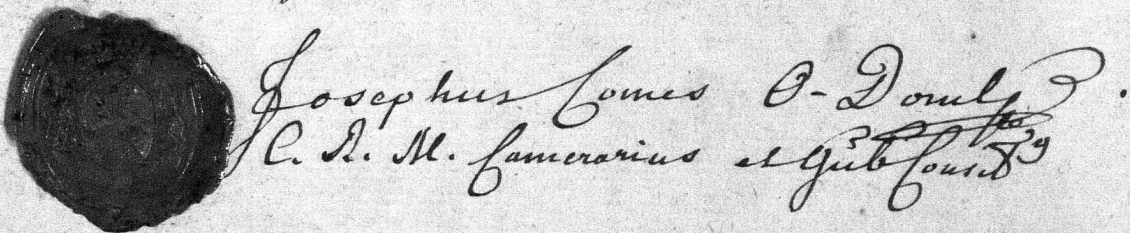 Josephus Comes O-Donel
C. R. M. Camerarius et Gub Consil